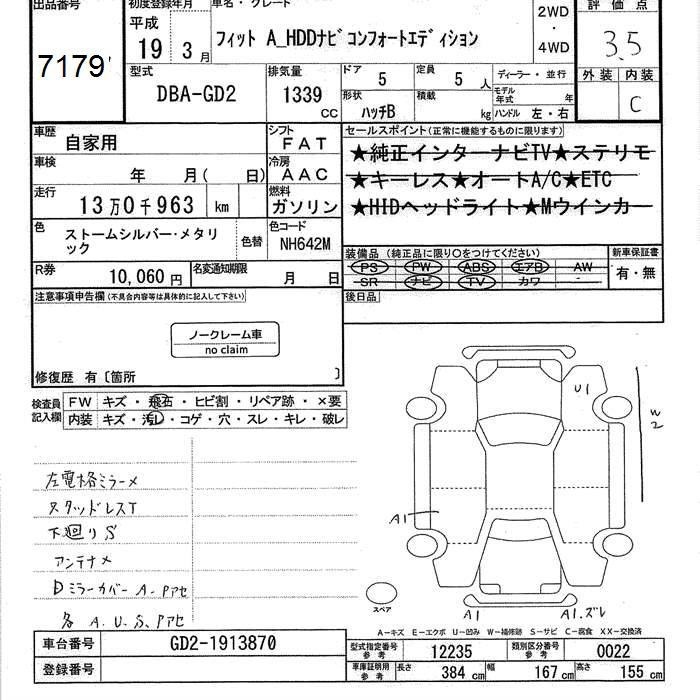 出品番号
7179
初度登録年月
平成
19 3月
車名・グレード
フィット A_HDDナビコンフォートエディション
2WD
・
4WD
評価点
3.5
外装 内装
C
型式
DBA-GD2
排気量
1339
cc
ドア
5
定員
5 人
形状
ハッチB
積載
kg
ディーラー・並行
モデル年式 年
ハンドル 左・右
車歴 自家用
シフト
FAT
車検 年 月( 日)
冷房
AAC
走行 13万0千963 km
燃料
ガソリン
色 ストームシルバー・メタリック
色替
色コード
NH642M
R券 10,060円
名変通知期限 月 日
セールスポイント(正常に機能するものに限ります)
★純正インターナビTV★ステリモ
★キーレス★オートA/C★ETC
★HIDヘッドライト★Mウインカー
装備品 (純正品に限り○をつけてください)
PS PW ABS エアB AW
SR ナビ TV カワ -
新車保証書
有・無
後日品
注意事項申告欄(不具合内容等は具体的に記入して下さい)
ノークレーム車
no claim
修復歴 有〔箇所 〕
検査員記入欄
FW キズ・飛石・ヒビ割・リペア跡・×要
内装 キズ・汚レ・コゲ・穴・スレ・キレ・破レ
左電格ミラーメ
スタッドレスT
下廻りS
アンテナメ
Dミラーカバー A.Pアセ
各 A.U.S.Pアセ
U1
W2
A1
スペア
A1
A1.ズレ
A-キズ E-エクボ U-凹み W-補修跡 S-サビ C-腐食 XX-交換済
車台番号 GD2-1913870
登録番号
型式指定番号 参考 12235
類別区分番号 参考 0022
車庫証明用 参考 長さ 384 cm 幅 167 cm 高さ 155 cm